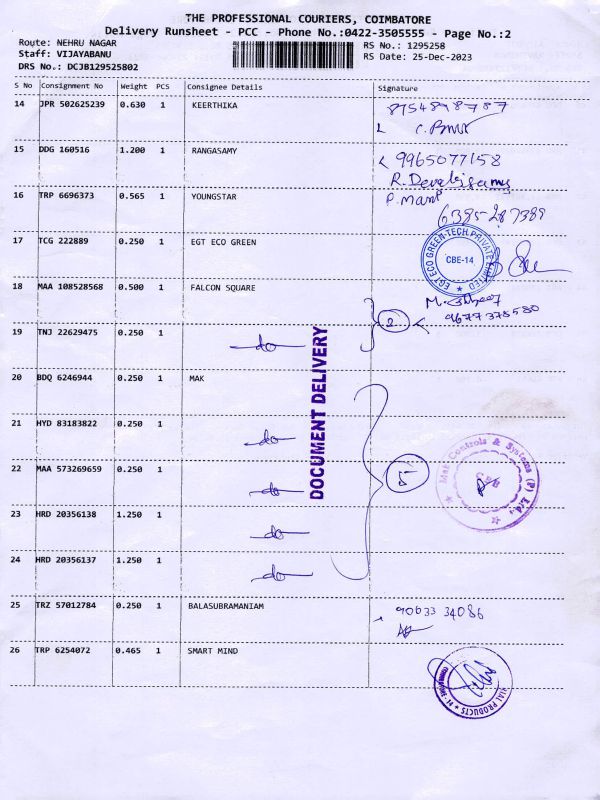 THE PROFESSIONAL COURIERS, COIMBATORE
Delivery Runsheet - PCC - Phone No.:0422-3505555 - Page No.:2
Route: NEHRU NAGAR
Staff: VIJAYABANU
DRS No.: DCJB129525802
RS No.: 1295258
RS Date: 25-Dec-2023
S No Consignment No Weight PCS Consignee Details Signature
14 JPR 502625239 0.630 1 KEERTHIKA
15 DDG 160516 1.200 1 RANGASAMY 9965077158
16 TRP 6696373 0.565 1 YOUNGSTAR P. Mani
17 TCG 222889 0.250 1 EGT ECO GREEN
EGT ECO GREEN TECH PRIVATE LIMITED
CBE-14
18 MAA 108528568 0.500 1 FALCON SQUARE
9677378580
19 TNJ 22629475 0.250 1 do 2
20 BDQ 6246944 0.250 1 MAK
DOCUMENT DELIVERY
21 HYD 83183822 0.250 1 do
22 MAA 573269659 0.250 1 do 5
Mak Controls & Systems (P) Ltd.,
23 HRD 20356138 1.250 1 do
24 HRD 20356137 1.250 1 do
25 TRZ 57012784 0.250 1 BALASUBRAMANIAM 90033 34086
26 TRP 6254072 0.465 1 SMART MIND
PRODUCTS